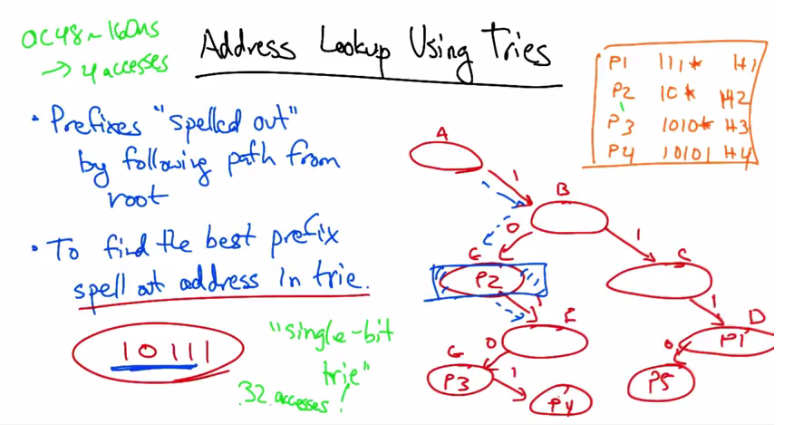 OC48~160ns
→ 4 accesses
Address Lookup Using Tries
P1 111* H1
P2 10* H2
P3 1010* H3
P4 10101 H4
• Prefixes "spelled out"
by following path from
root
• To find the best prefix
spell out address in trie.
10111
"single-bit
trie"
32 accesses!
A
1
B
0
1
C
P2
C
1
1
E
D
P1
0
0
G
P3
1
P4
P5